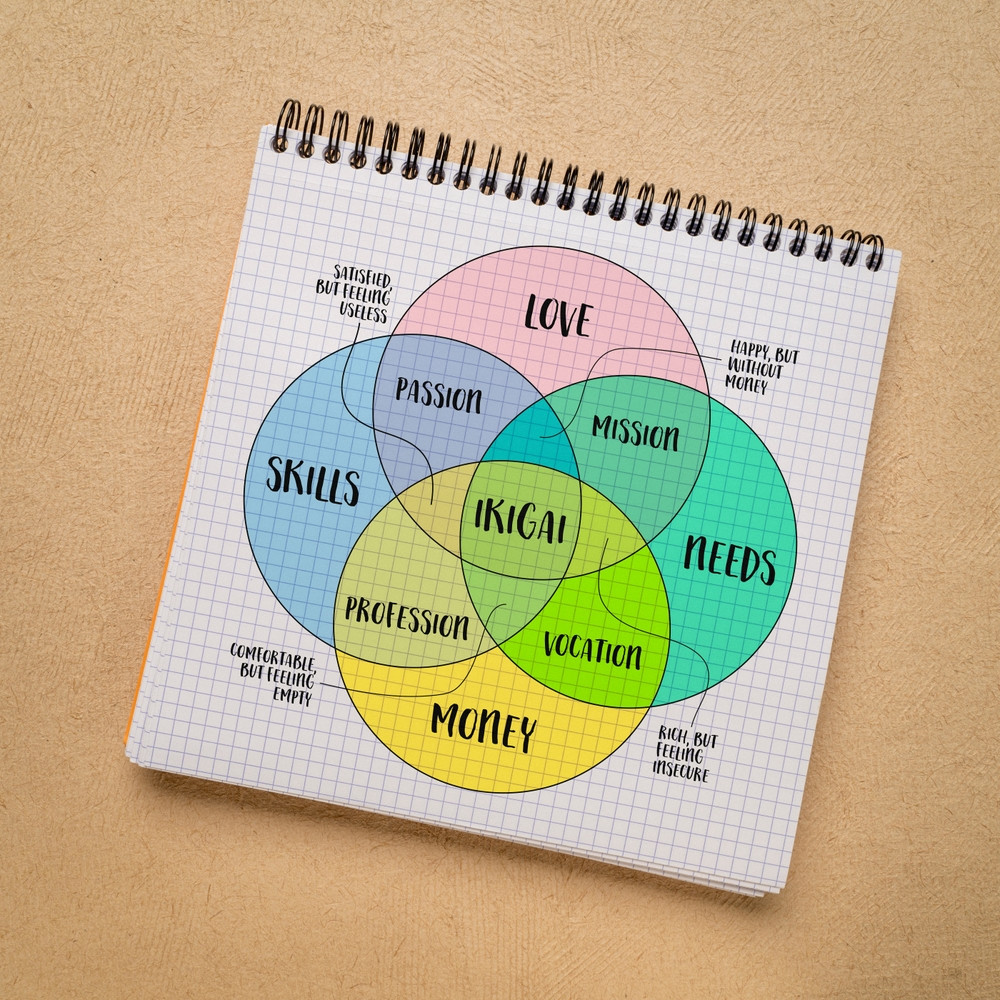 SATISFIED,
BUT FEELING
USELESS
LOVE
HAPPY, BUT
WITHOUT
MONEY
PASSION
MISSION
SKILLS
IKIGAI
NEEDS
PROFESSION
VOCATION
COMFORTABLE,
BUT FEELING
EMPTY
MONEY
RICH, BUT
FEELING
INSECURE